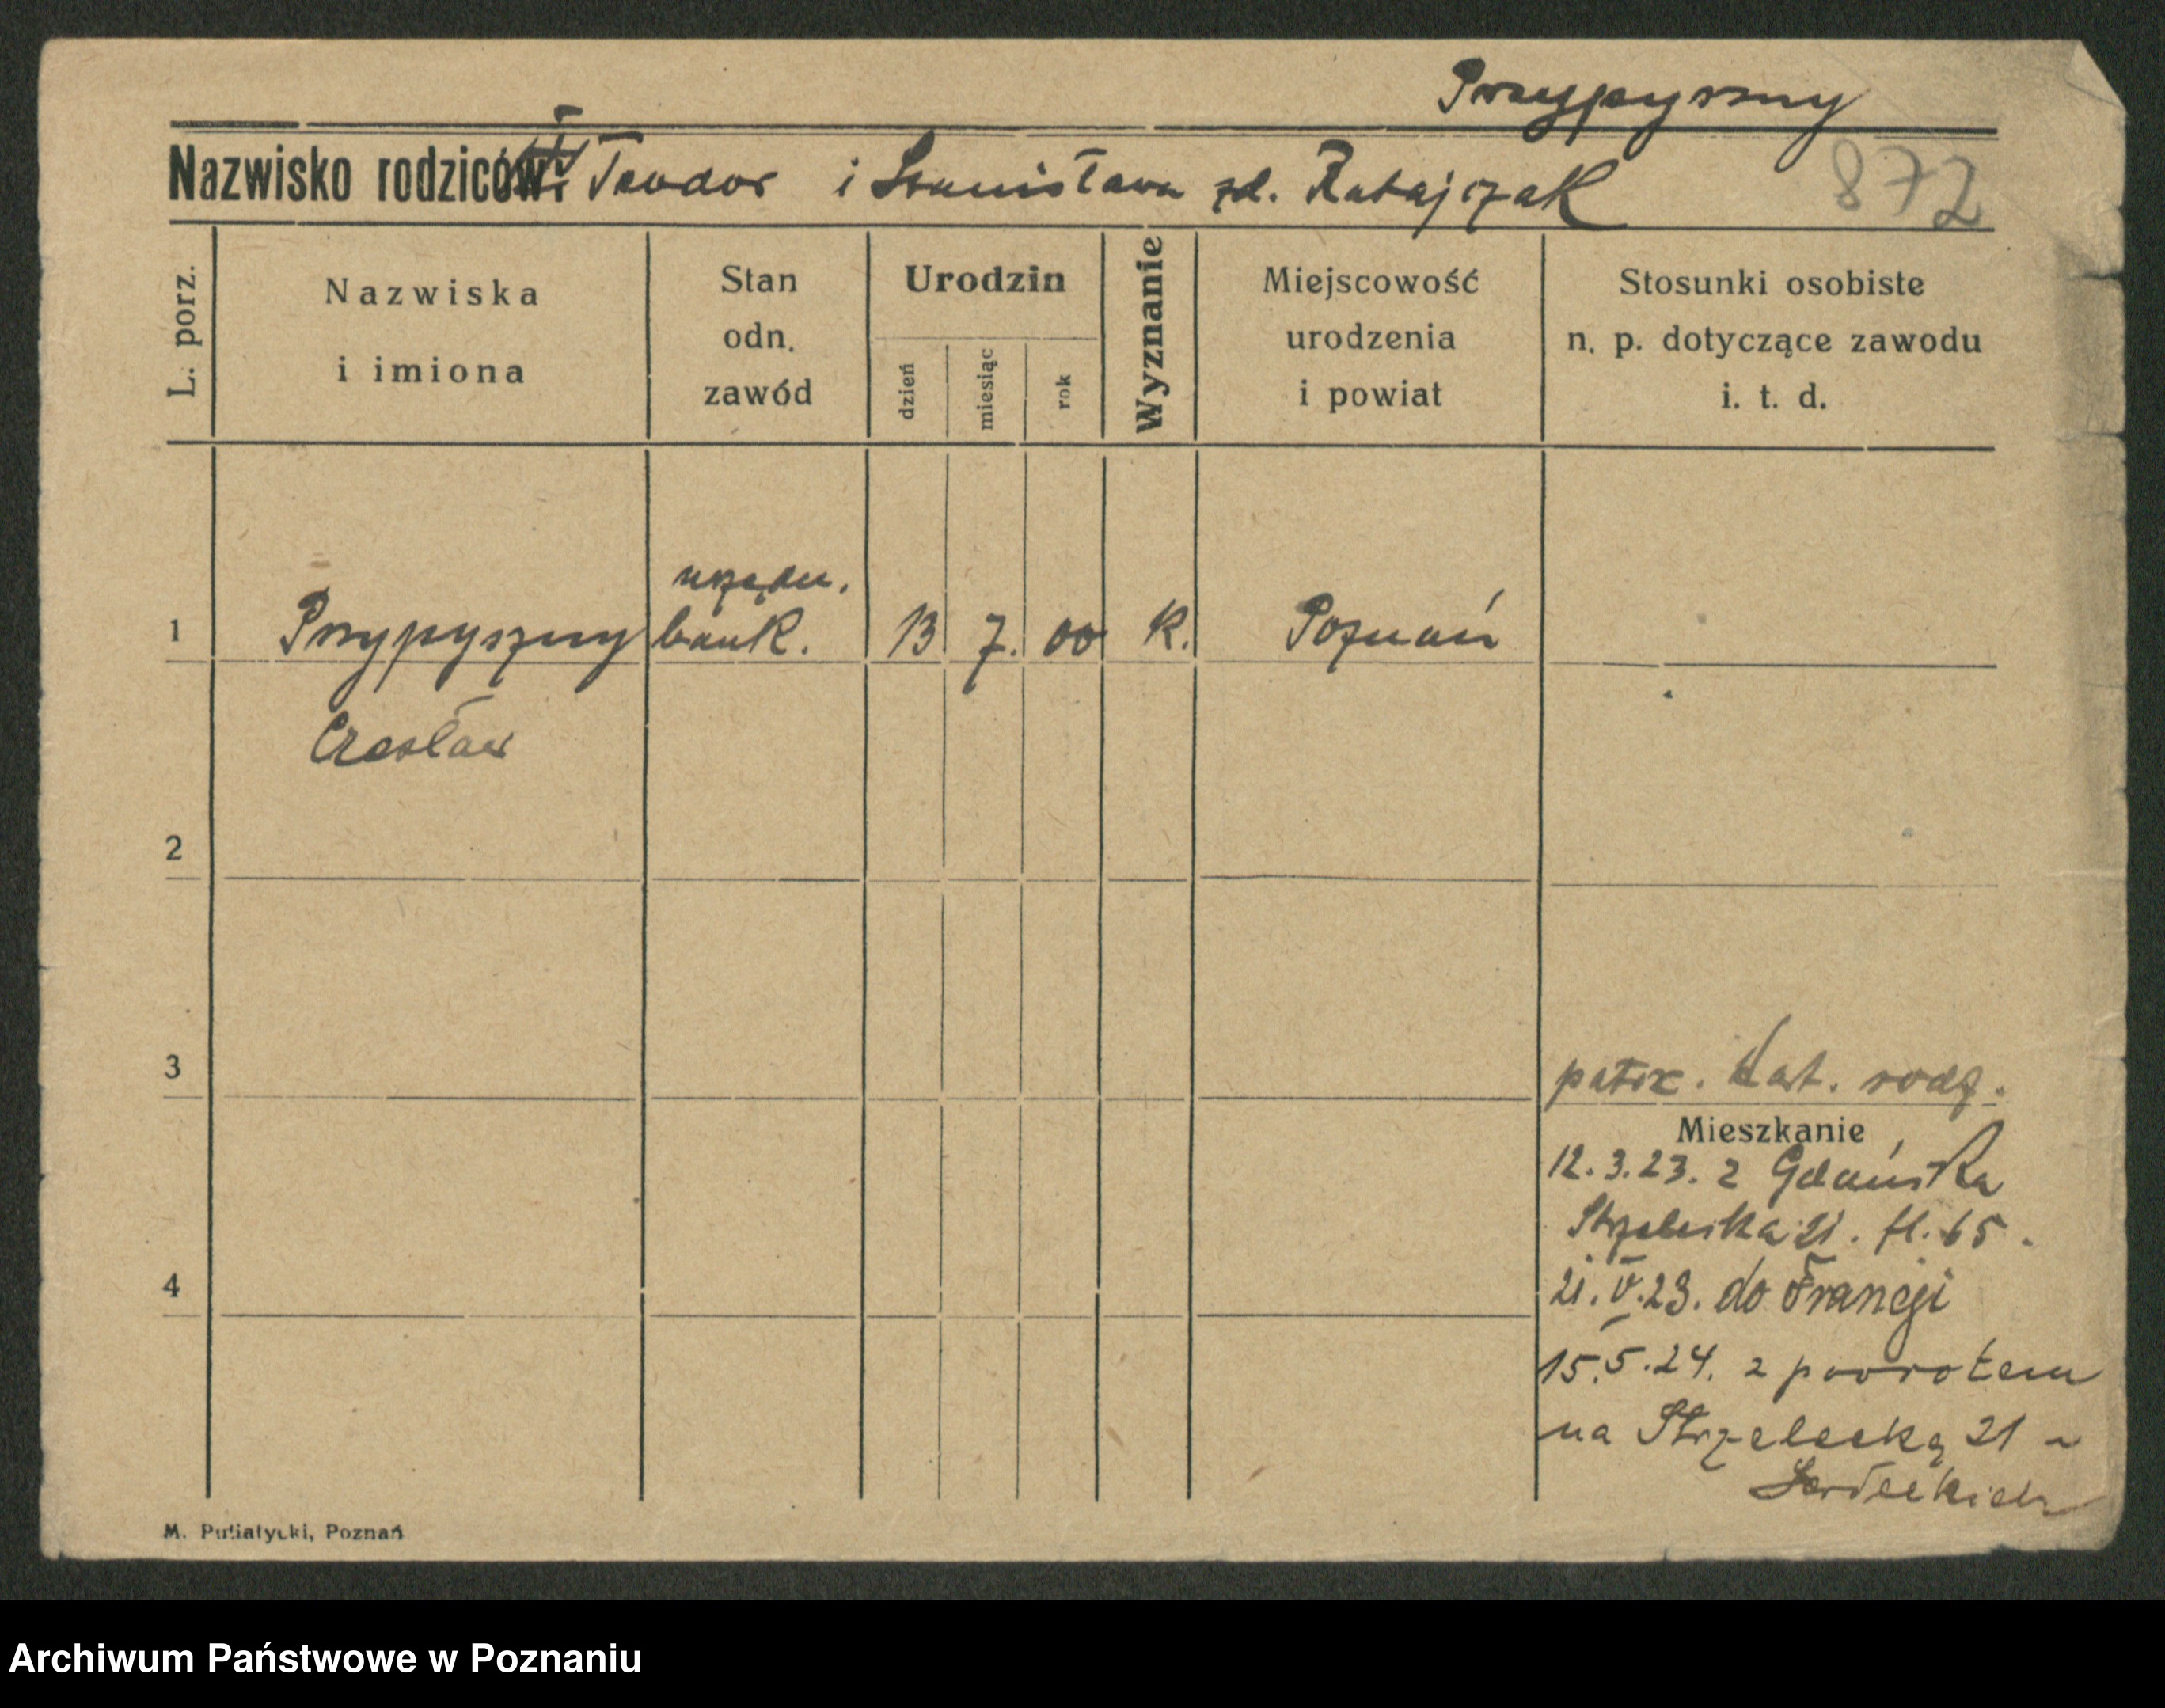 Przypyszny
Nazwisko rodziców: Teodor i Stanisława zd. Ratajczak
872
L. porz.
Nazwiska
i imiona
Stan
odn.
zawód
Urodzin
dzień
miesiąc
rok
Wyznanie
Miejscowość
urodzenia
i powiat
Stosunki osobiste
n. p. dotyczące zawodu
i. t. d.
urzędn.
1 Przypyszny bank. 13 7. 00 K. Poznań
Czesław
2
3
patrz. kart. rodz.
Mieszkanie
12.3.23. z Gdańska
Strzelecka 21. fl. 65.
4
21.V.23. do Francji
15.5.24. z powrotem
na Strzelecką 21
M. Putiatycki, Poznań
Archiwum Państwowe w Poznaniu